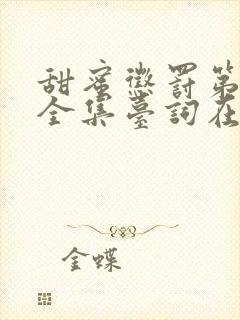 甜蜜懲罰第
全集臺詞在
金蝶